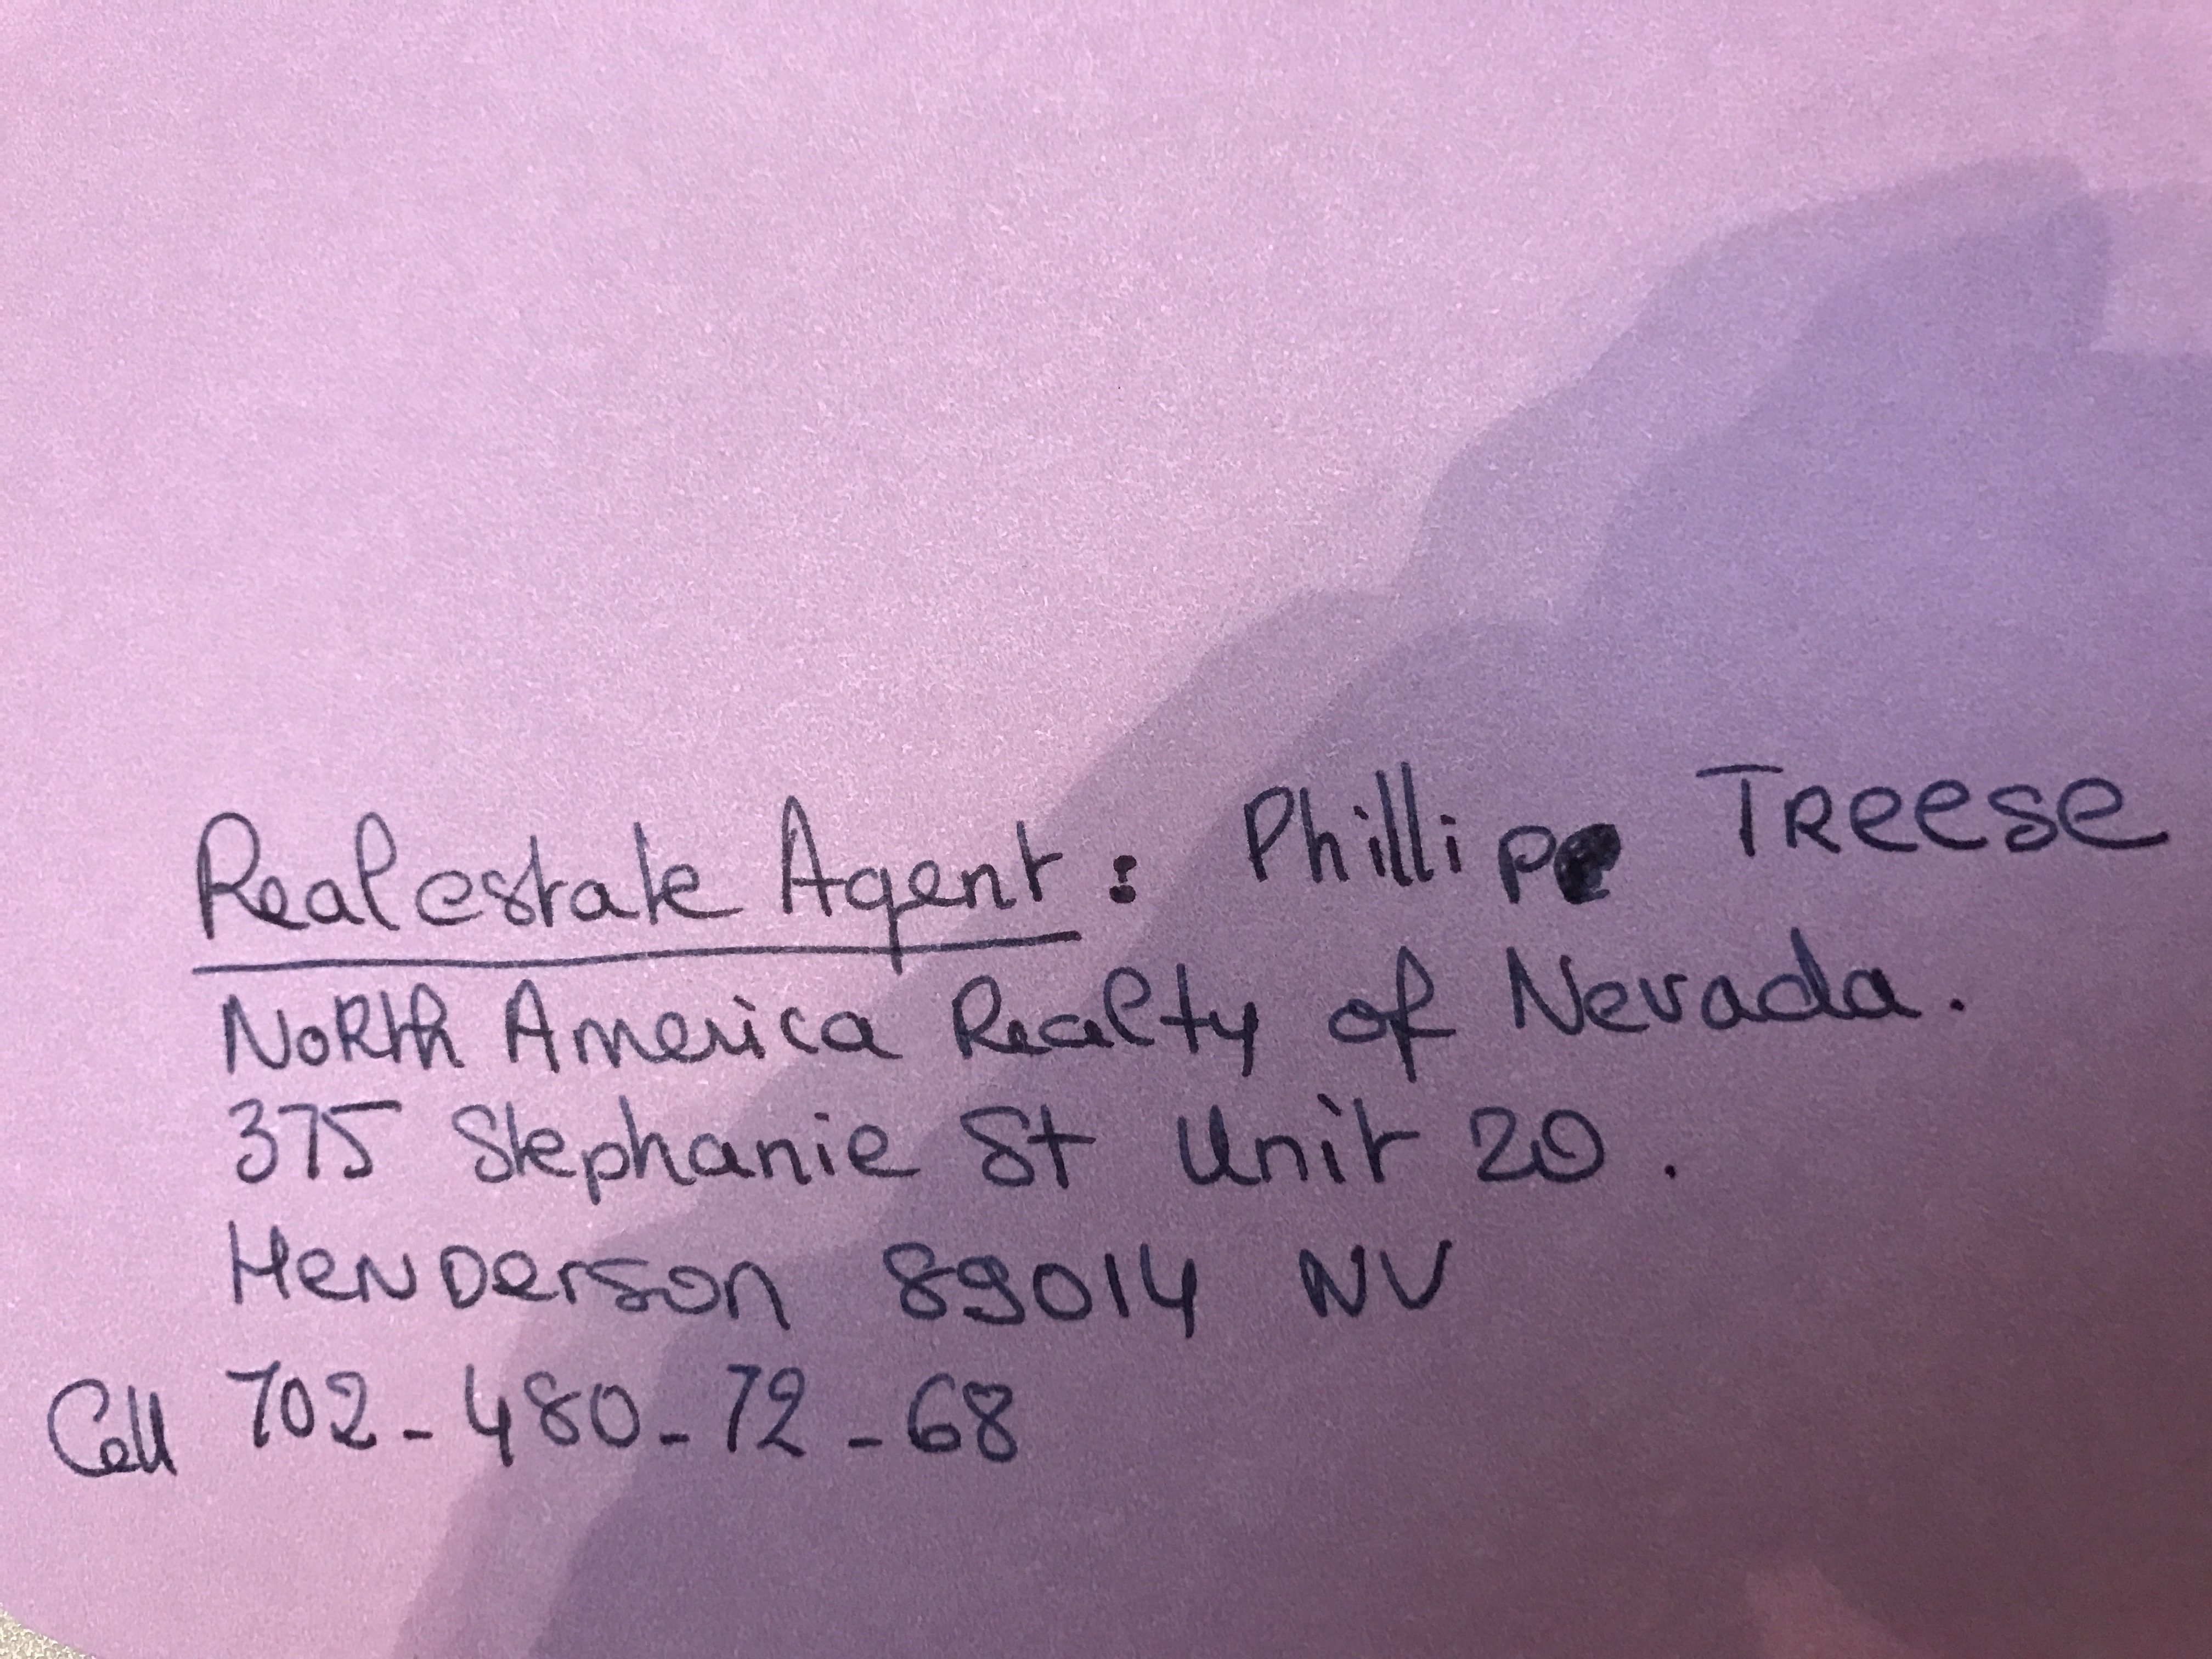 Real estate Agent : Phillip TREESE
NORth America Realty of Nevada.
375 Stephanie St Unit 20.
HenDerson 89014 NV
Cell 702-480-72-68